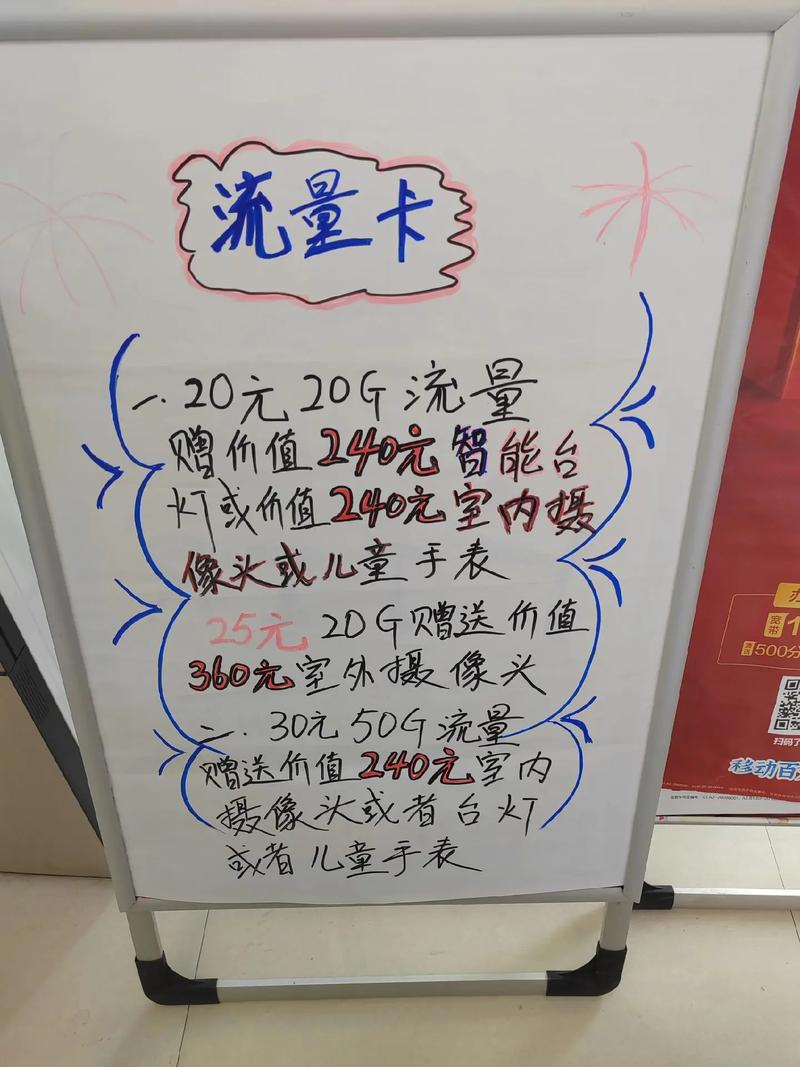 流量卡
一.20元20G流量
赠价值240元智能台
灯或价值240元室内摄
像头或儿童手表
25元20G赠送价值
360元室外摄像头
二.30元50G流量
赠送价值240元室内
摄像头或者台灯
或者儿童手表
宽带
500分
扫码了
移动百